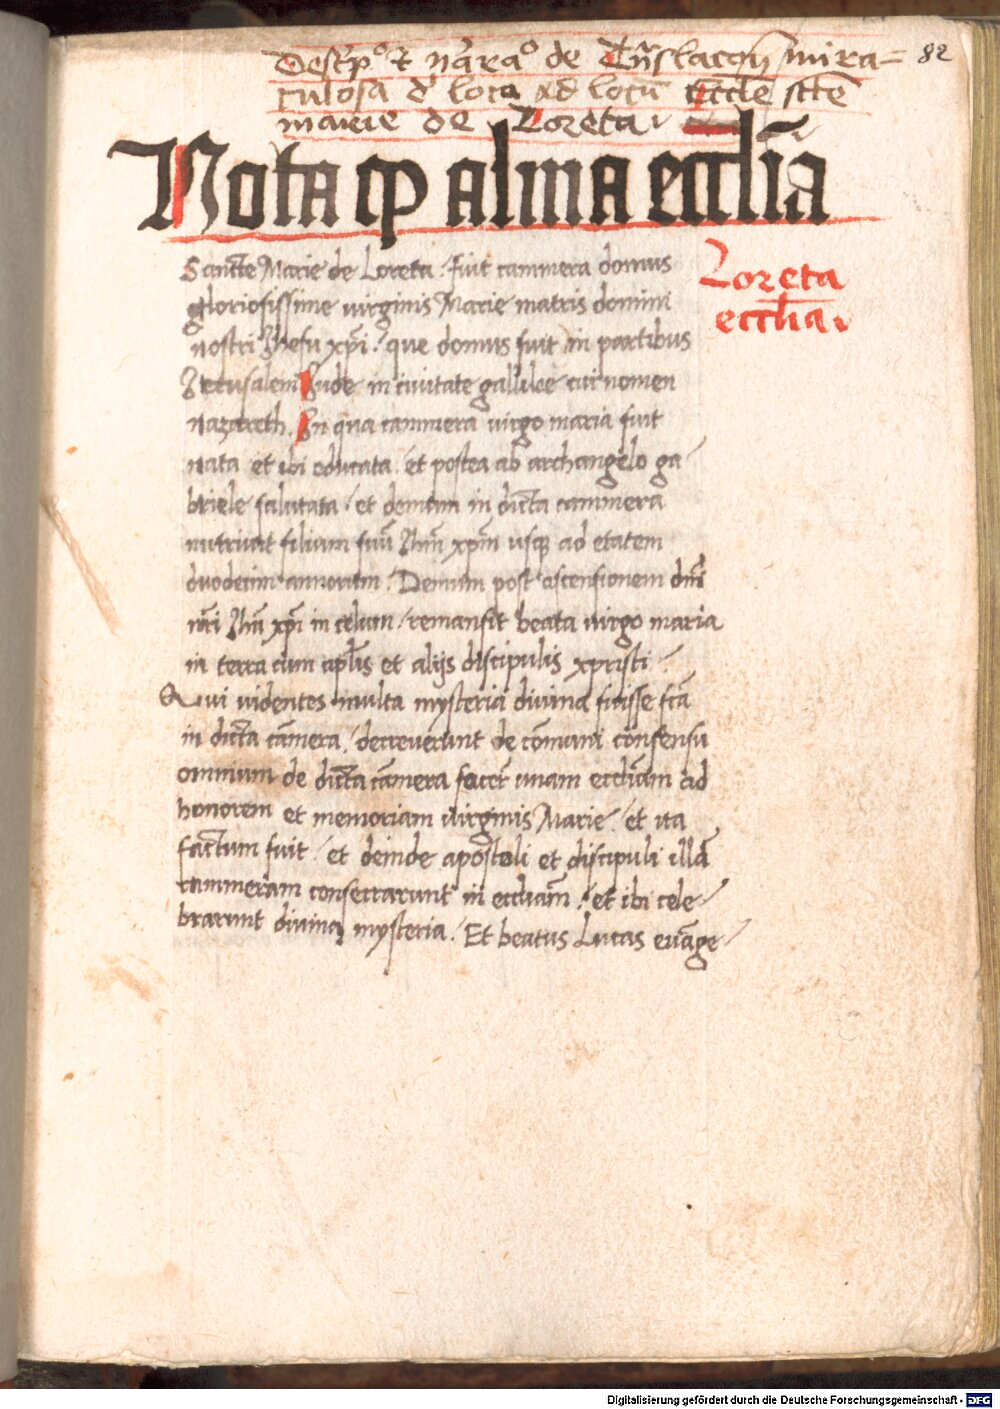 Descpº et narraº de Trnslacōn mira=
culosa d' loco ad locū Eccle scte
marie de Loreta
82
Nota qp alma ecclīa
Loreta
ecclia
Sancte Marie de Loreta. fuit cammera domus
gloriosissime virginis Marie matris domini
nostri Jhesu xpī. que domus fuit in partibus
Jherusalem Jude in civitate gallilee cui nomen
nazareth. In qua cammera virgo maria fuit
nata et ibi educata. et postea ab archangelo ga
briele salutata / et demum in dicta cammera
nutrivit filium suū Jhm̄ xpm̄ usque ad etatem
duodecim annorum. Demum post ascensionem dnī
nrī Jhū xpī in celum / remansit beata virgo maria
in terra cum apl̄is et alijs discipulis xpristi
Qui videntes multa mysteria divina fuisse fctā
in dicta cāmera. decreverunt de cōmuni consensu
omnium de dicta cāmera facer̄ unam eccliam ad
honorem et memoriam virginis Marie. et ita
factum fuit. et deinde apostoli et discipuli illā
cammeram consecrarunt in eccliam. et ibi cele
brarunt divina mysteria. Et beatus Lucas evāge
Digitalisierung gefördert durch die Deutsche Forschungsgemeinschaft - DFG